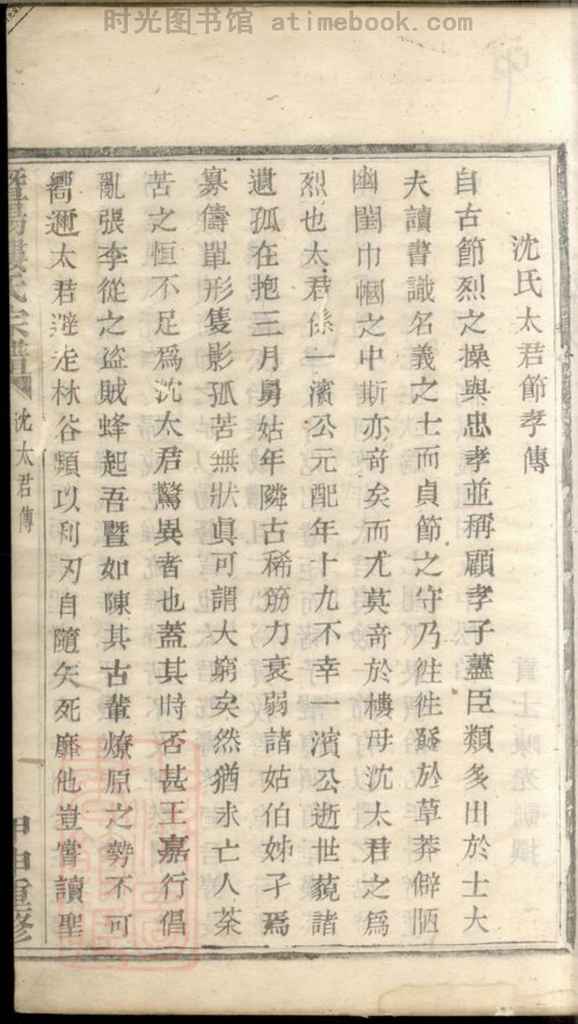 时光图书馆 atimebook.com
沈氏太君節孝傳
自古節烈之操與忠孝並稱顧孝子藎臣類多出於士大
夫讀書識名義之士而貞節之守乃徃徃繇於草莽僻陋
幽閨巾幗之中斯亦奇矣而尤莫奇於樓母沈太君之爲
烈也太君係一濱公元配年十九不幸一濱公逝世藐諸
遺孤在抱三月舅姑年隣古稀筋力衰弱諸姑伯姊孑焉
寡儔單形隻影孤苦無狀眞可謂大窮矣然猶未亡人茶
苦之恒不足爲沈太君驚異者也蓋其時否甚王嘉行倡
亂張李從之盜賊蜂起吾暨如陳其古輩燎原之勢不可
嚮邇太君避走林谷頻以利刃自隨矢死靡他豈嘗讀聖
氏宗譜
沈太君傳
甲申重修